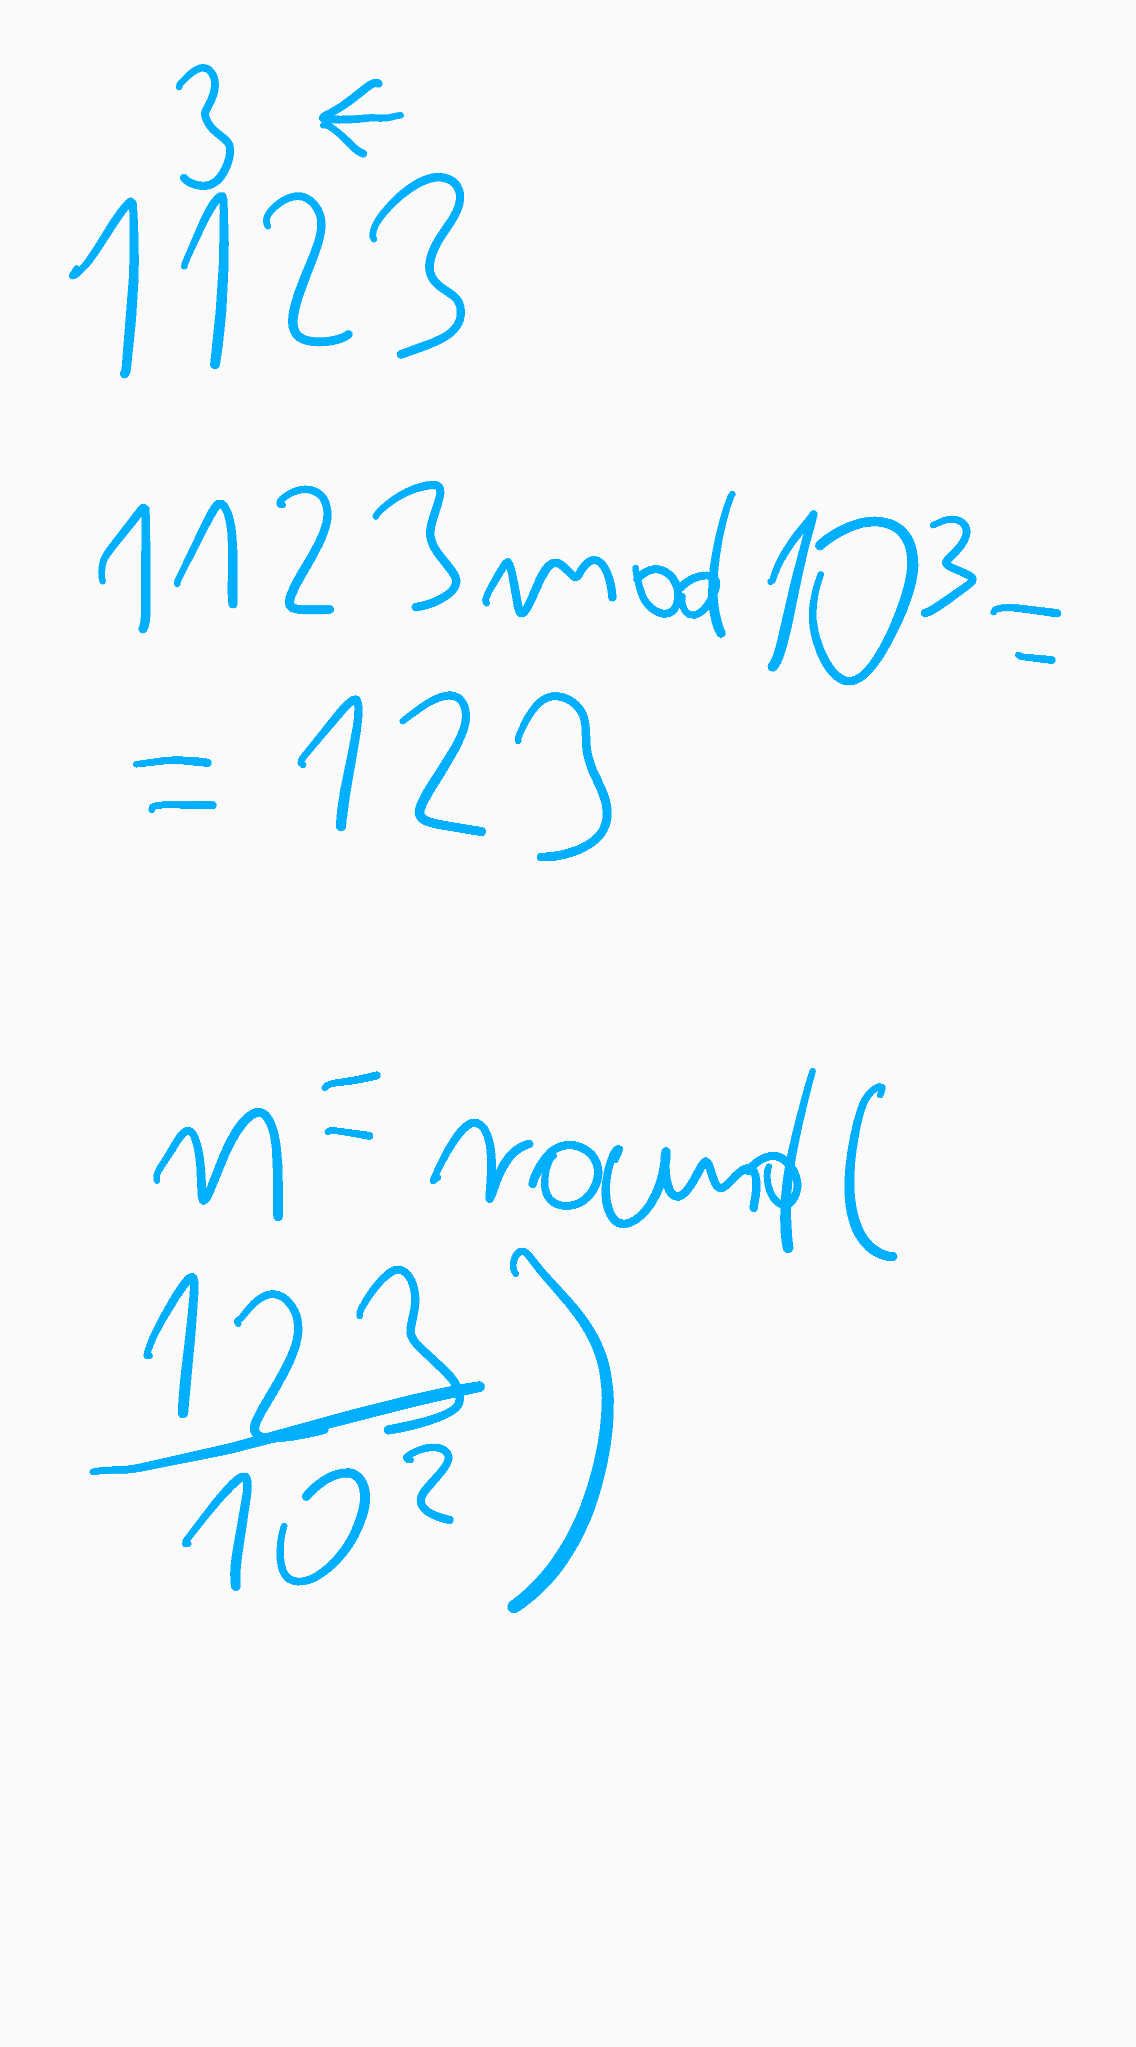 3 ←
1123
1123 mod 10³ =
= 123
n = round(
123
10²
)